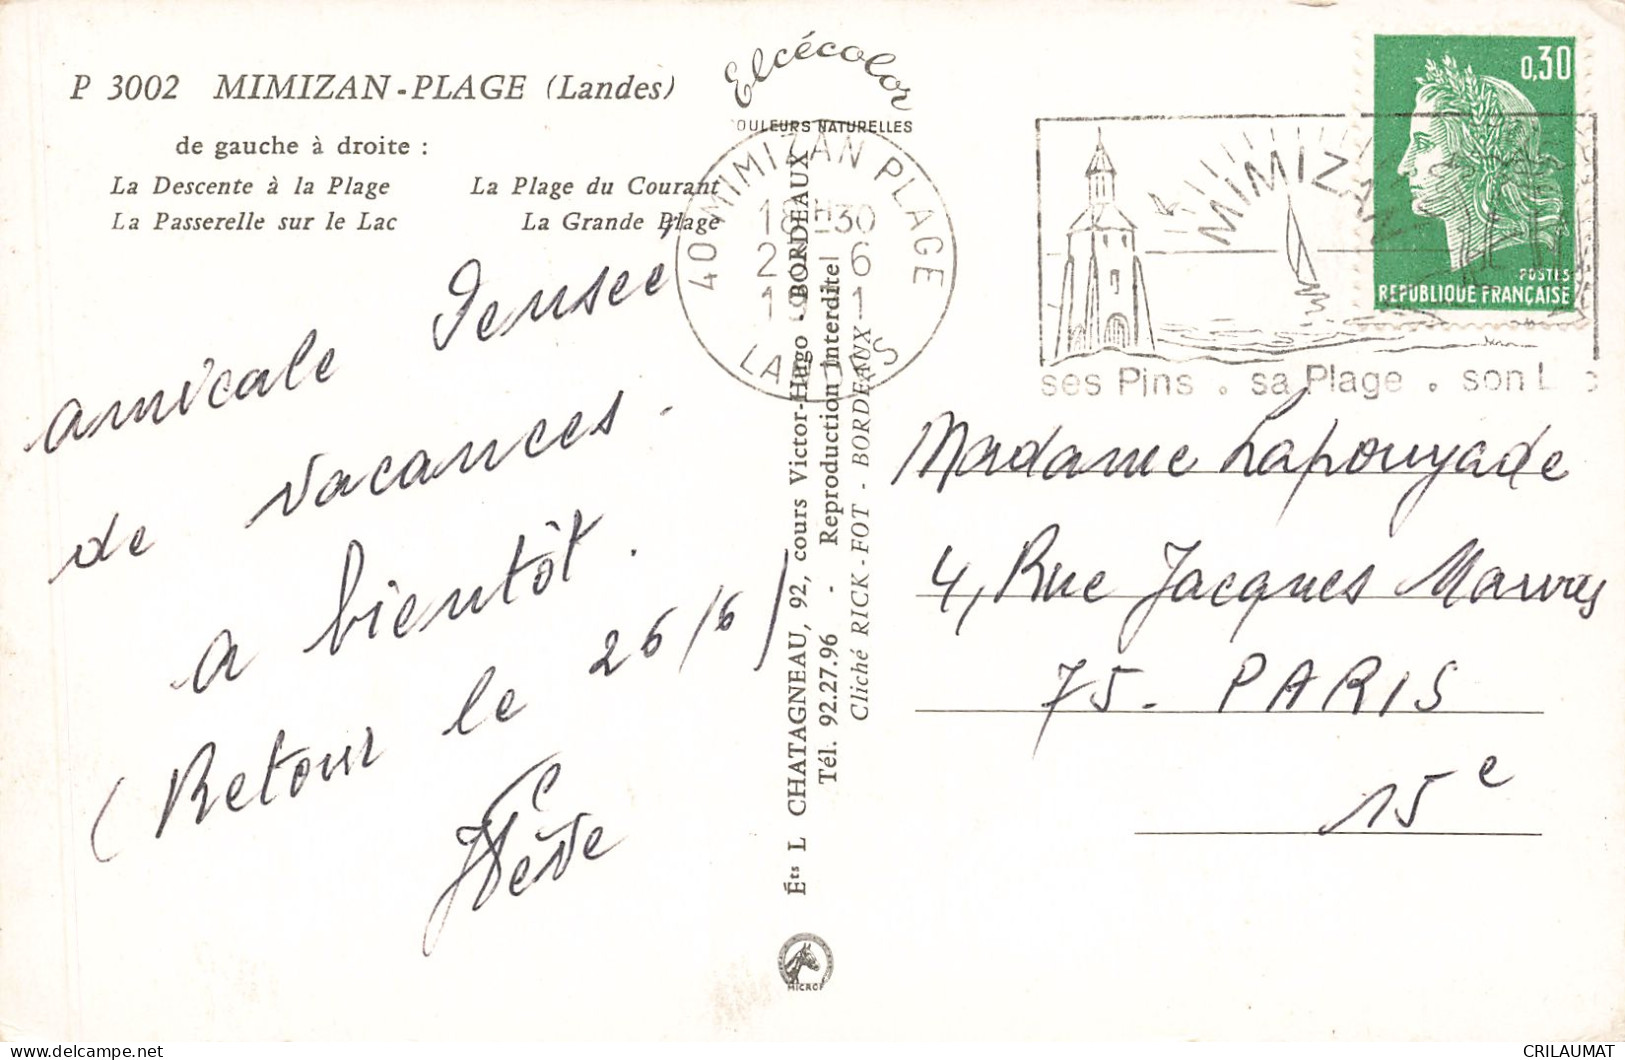 P 3002 MIMIZAN-PLAGE (Landes)
de gauche à droite :
La Descente à la Plage La Plage du Courant
La Passerelle sur le Lac La Grande Plage
amicale Pensée
de vacances.
a bientôt.
(Retour le 26/6)
Elcécolor
OULEURS NATURELLES
Éts L CHATAGNEAU, 92, cours Victor-Hugo - BORDEAUX
Tél. 92.27.96 - Reproduction Interdite
Cliché RICK-FOT - BORDEAUX
MICROF
40 MIMIZAN PLAGE
18H30
2 6
19 1
LANDES
MIMIZAN
ses Pins . sa Plage . son L c
0,30
POSTES
REPUBLIQUE FRANÇAISE
Madame Lapouyade
4, Rue Jacques Mawas
75. PARIS
15e
CRILAUMAT